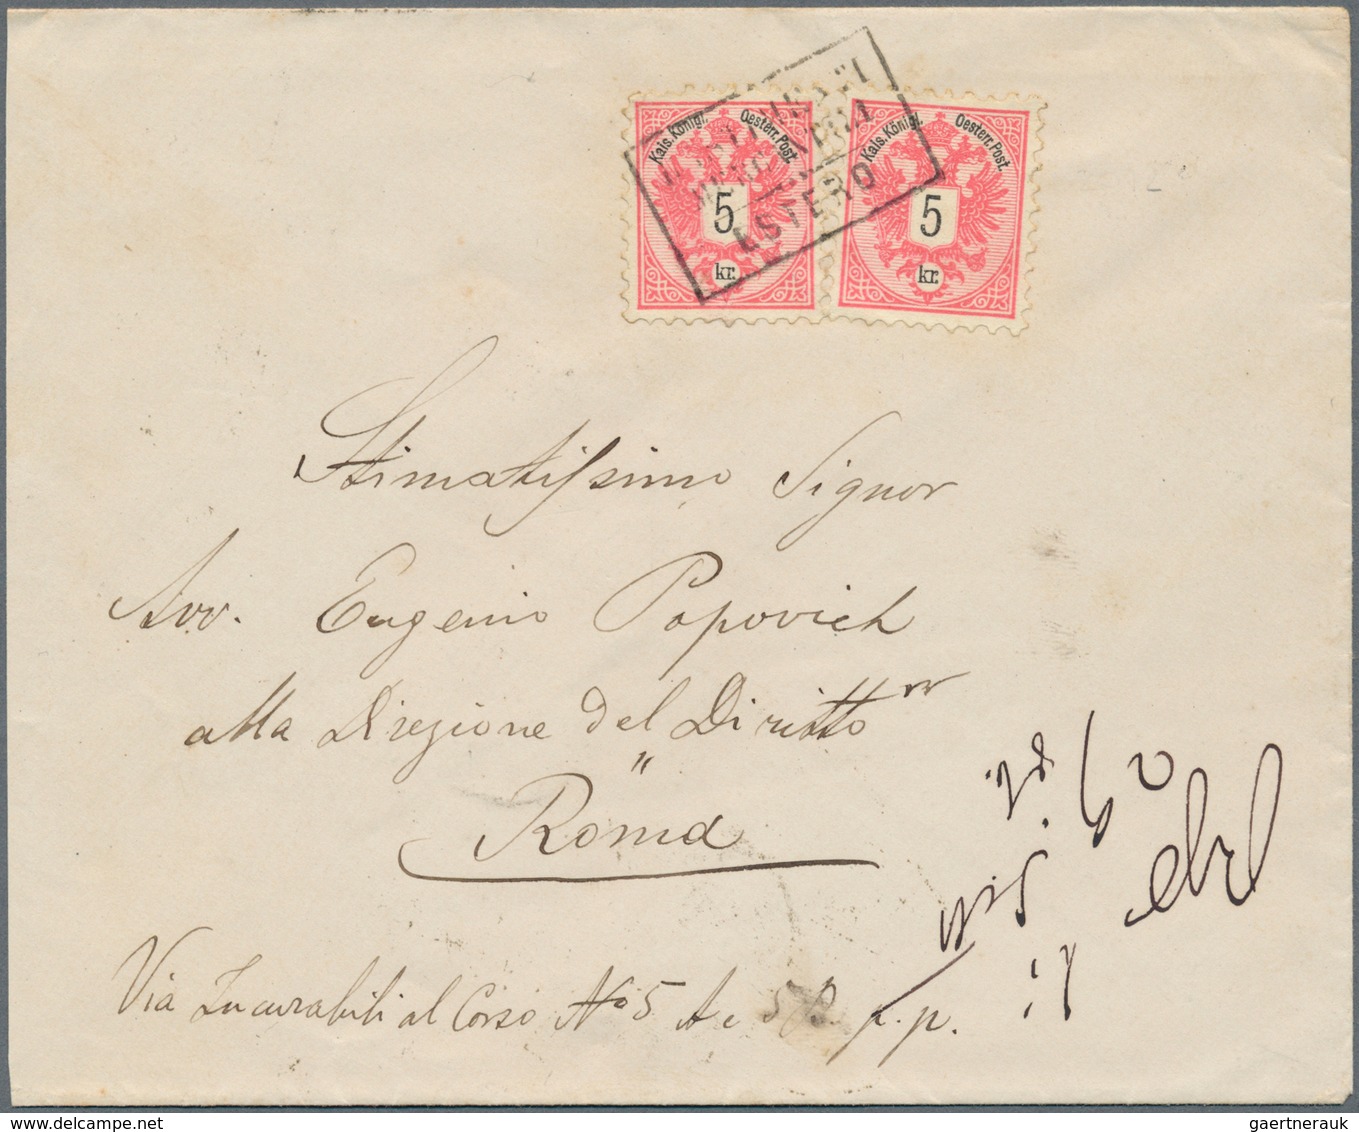 Kais. Königl. Oesterr. Post.
5
kr.
Kais. Königl. Oesterr. Post.
5
kr.
ESTERO
Stimatissimo Signor
Avv. Eugenio Popovich
alla Direzione del Diritto
Roma
Via Incurabili al Corso No 5 A e p.p.
gaertnerauk